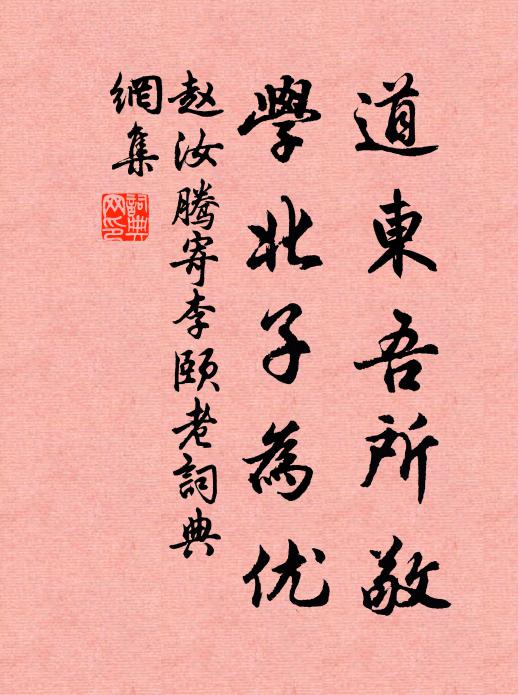 道東吾所敬
學北子為优
赵汝騰寄李頤老詞典
網集
詞典
网印